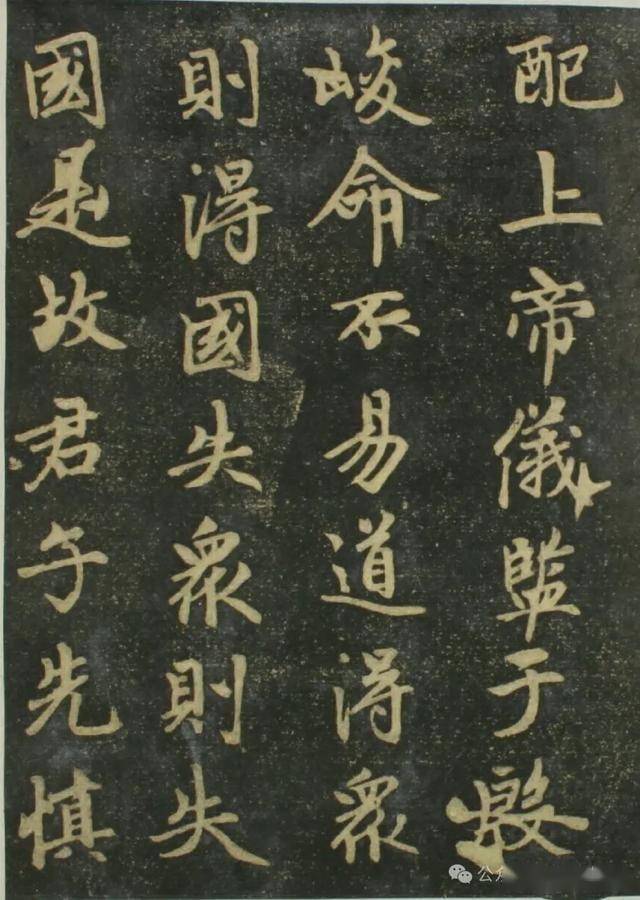 配上帝儀監于殷
峻命不易道得眾
則得國失眾則失
國是故君子先慎
公